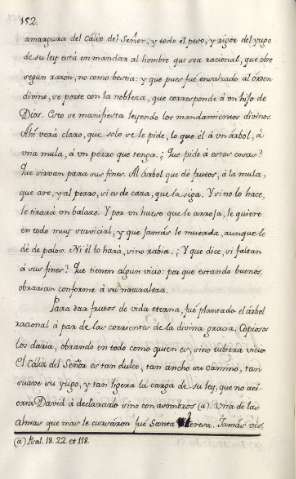 152.
amargura del Caliz del Señor, y todo el peso, y rigor del yugo
de su ley está en mandar al hombre que sea racional, que obre
segun razon, no como bestia: y que pues fue ensalzado al orden
divino, se porte con la nobleza, que corresponde á un hijo de
Dios. Esto se manifiesta leyendo los mandamientos divinos.
Ahí verá claro, que solo se le pide, lo que él á un árbol, á
una mula, á un perro que tenga. ¿Que pide á estas cosas?
Que sirvan para sus fines. Al árbol que de frutos, á la mula,
que are, y al perro, si es de caza, que la siga. Y si no lo hace,
le tirará un balazo. Y por un hueso que le arroja, le quiere
en todo muy servicial, y que jamás le muerda, aunque le
dé de palos. Ni él lo hará, sino rabia. ¿Y que dice, si faltan
á sus fines? Que tienen algun vicio: por que estando buenos,
obrarian conforme á su naturaleza.
Para dar frutos de vida eterna, fué plantado el árbol
racional á par de las corrientes de la divina gracia. Copiosos
los daria, obrando en todo como quien es, sino tubiera vicio.
El Caliz del Señor es tan dulce, tan ancho su camino, tan
suave su yugo, y tan ligera la carga de su ley, que no acertaria
David á declararlo sino con asombros (a). Una de las
almas que mas le cursaron fué Santa Teresa. Jamás
(a) Psal. 18. 22. et 118.